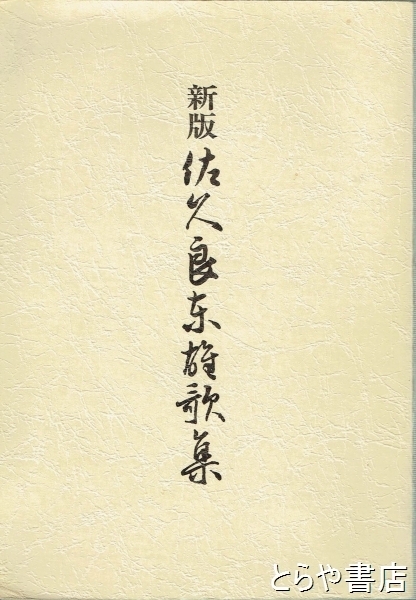 新版 佐久良东雄歌集
とらや書店